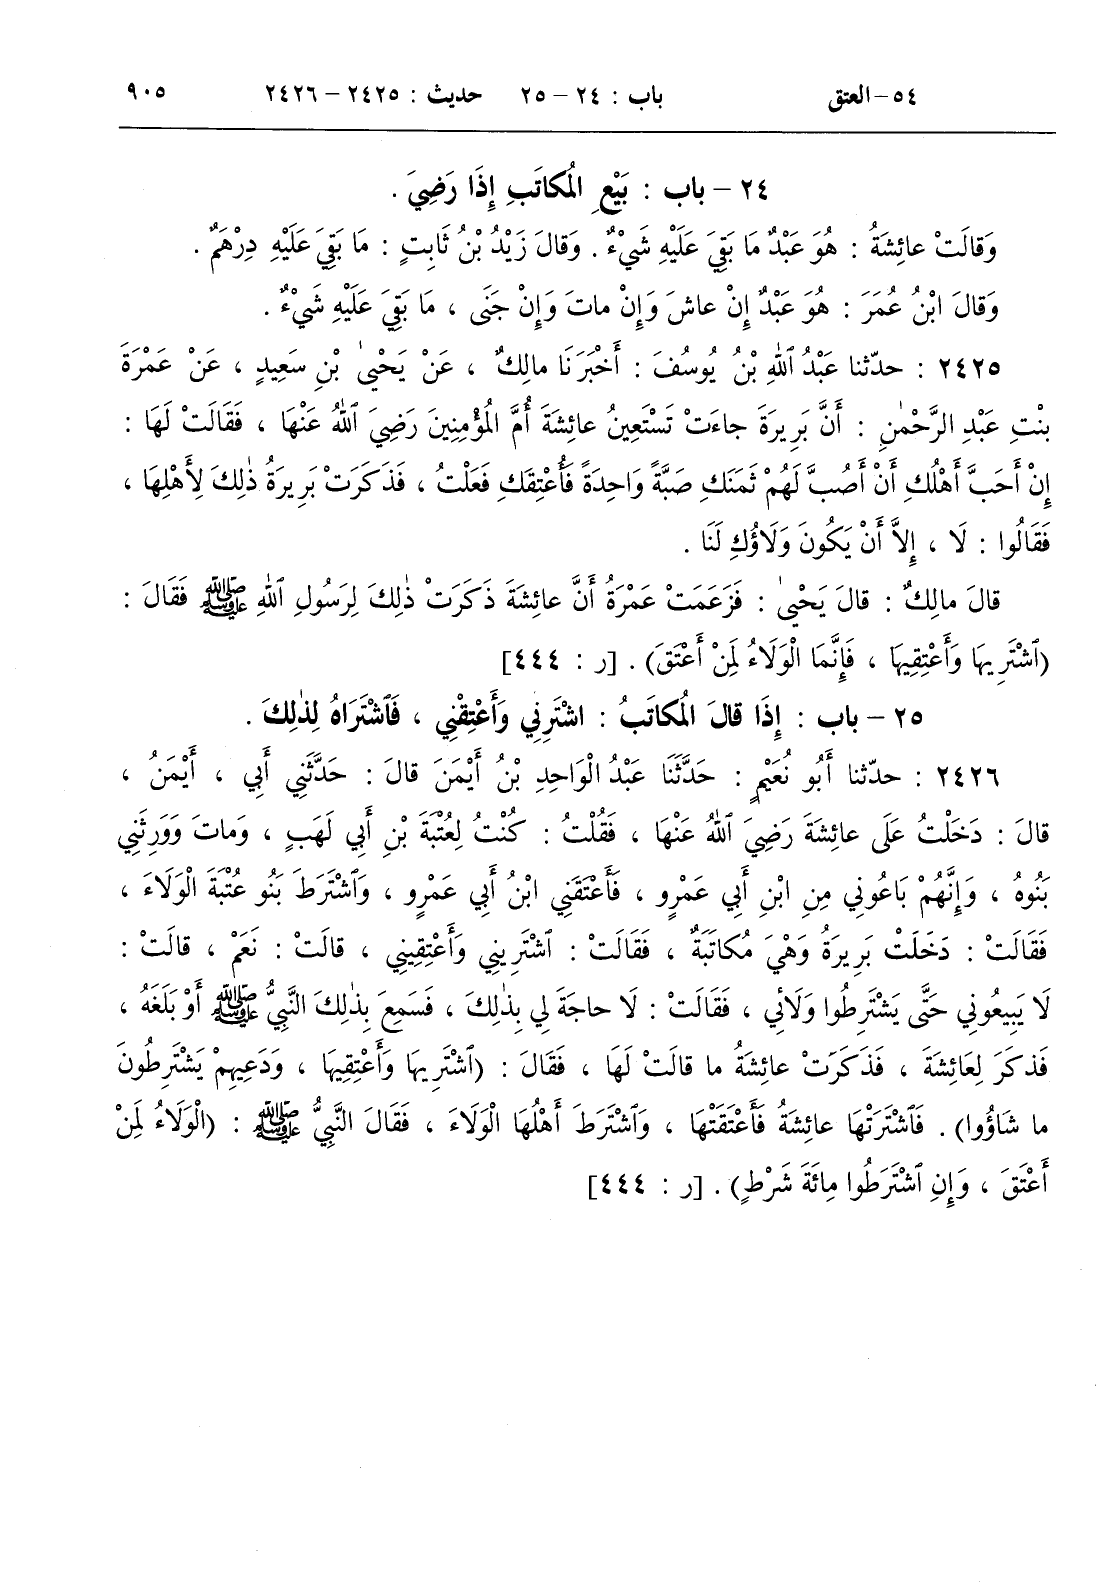 ٥٤ – العتق باب : ٢٤ – ٢٥ حديث : ٢٤٢٥ – ٢٤٢٦ ٩٠٥
٢٤ – باب : بَيْعِ الْمُكاتَبِ إِذَا رَضِيَ .
وَقالَتْ عائِشَةُ : هُوَ عَبْدٌ مَا بَقِيَ عَلَيْهِ شَيْءٌ . وَقالَ زَيْدُ بْنُ ثَابِتٍ : مَا بَقِيَ عَلَيْهِ دِرْهَمٌ .
وَقالَ ابْنُ عُمَرَ : هُوَ عَبْدٌ إِنْ عاشَ وَإِنْ ماتَ وَإِنْ جَنَى ، مَا بَقِيَ عَلَيْهِ شَيْءٌ .
٢٤٢٥ : حدّثنا عَبْدُ ٱللهِ بْنُ يُوسُفَ : أَخْبَرَنَا مالِكٌ ، عَنْ يَحْيىٰ بْنِ سَعِيدٍ ، عَنْ عَمْرَةَ
بِنْتِ عَبْدِ الرَّحْمٰنِ : أَنَّ بَرِيرَةَ جاءَتْ تَسْتَعِينُ عائِشَةَ أُمَّ الْمُؤْمِنِينَ رَضِيَ ٱللهُ عَنْهَا ، فَقَالَتْ لَهَا :
إِنْ أَحَبَّ أَهْلُكِ أَنْ أَصُبَّ لَهُمْ ثَمَنَكِ صَبَّةً وَاحِدَةً فَأُعْتِقَكِ فَعَلْتُ ، فَذَكَرَتْ بَرِيرَةُ ذٰلِكَ لِأَهْلِهَا ،
فَقَالُوا : لَا ، إِلاَّ أَنْ يَكُونَ وَلَاؤُكِ لَنَا .
قالَ مالِكٌ : قالَ يَحْيىٰ : فَزَعَمَتْ عَمْرَةُ أَنَّ عائِشَةَ ذَكَرَتْ ذٰلِكَ لِرَسُولِ ٱللهِ ﷺ فَقَالَ :
(ٱشْتَرِيهَا وَأَعْتِقِيهَا ، فَإِنَّمَا الْوَلَاءُ لِمَنْ أَعْتَقَ) . [ر : ٤٤٤]
٢٥ – باب : إِذَا قالَ الْمُكاتَبُ : اشْتَرِنِي وَأَعْتِقْنِي ، فَٱشْتَرَاهُ لِذٰلِكَ .
٢٤٢٦ : حدّثنا أَبُو نُعَيْمٍ : حَدَّثَنَا عَبْدُ الْوَاحِدِ بْنُ أَيْمَنَ قالَ : حَدَّثَنِي أَبِي ، أَيْمَنُ ،
قالَ : دَخَلْتُ عَلَى عائِشَةَ رَضِيَ ٱللهُ عَنْهَا ، فَقُلْتُ : كُنْتُ لِعُتْبَةَ بْنِ أَبِي لَهَبٍ ، وَماتَ وَوَرِثَنِي
بَنُوهُ ، وَإِنَّهُمْ بَاعُونِي مِنِ ابْنِ أَبِي عَمْرٍو ، فَأَعْتَقَنِي ابْنُ أَبِي عَمْرٍو ، وَٱشْتَرَطَ بَنُو عُتْبَةَ الْوَلَاءَ ،
فَقَالَتْ : دَخَلَتْ بَرِيرَةُ وَهْيَ مُكاتَبَةٌ ، فَقَالَتْ : ٱشْتَرِينِي وَأَعْتِقِينِي ، قالَتْ : نَعَمْ ، قالَتْ :
لَا يَبِيعُونِي حَتَّى يَشْتَرِطُوا وَلَائِي ، فَقَالَتْ : لَا حاجَةَ لِي بِذٰلِكَ ، فَسَمِعَ بِذٰلِكَ النَّبِيُّ ﷺ أَوْ بَلَغَهُ ،
فَذكَرَ لِعَائِشَةَ ، فَذَكَرَتْ عائِشَةُ ما قالَتْ لَهَا ، فَقَالَ : (ٱشْتَرِيهَا وَأَعْتِقِيهَا ، وَدَعِيهِمْ يَشْتَرِطُونَ
ما شَاؤُوا) . فَٱشْتَرَتْهَا عائِشَةُ فَأَعْتَقَتْهَا ، وَٱشْتَرَطَ أَهْلُهَا الْوَلَاءَ ، فَقَالَ النَّبِيُّ ﷺ : (الْوَلَاءُ لِمَنْ
أَعْتَقَ ، وَإِنِ ٱشْتَرَطُوا مِائَةَ شَرْطٍ) . [ر : ٤٤٤]